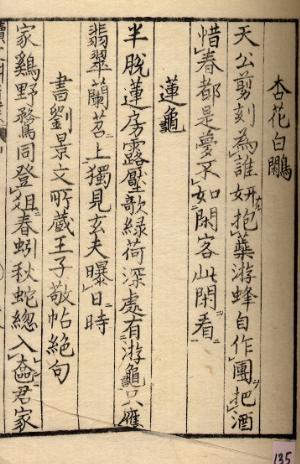 杏花白鷴
天公剪刻為誰妍抱蘂游蜂自作團把酒
惜春都是夢不如閑客此閑看
蓮龜
半脱蓮房露壓欹綠荷深處有游龜只應
翡翠蘭苕上獨見玄夫曝日時
書劉景文所蔵王子敬帖絶句
家鷄野鶩同登俎春蚓秋蛇總入奩君家
135